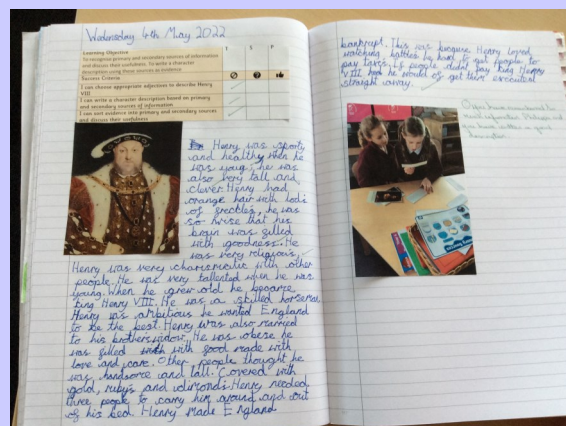 Wednesday 4th May 2022
Learning Objective
To recognise primary and secondary sources of information
and discuss their usefulness. To write a character
description using these sources as evidence
T S P
Success Criteria
I can choose appropriate adjectives to describe Henry
VIII
I can write a character description based on primary
and secondary sources of information
I can sort evidence into primary and secondary sources
and discuss their usefulness
Henry was sporty
and healthy when he
was young. he was
also very tall and
clever. Henry had
orange hair with lods
of greckles, he was
so wise that his
brain was filled
with goodness. He
was very religious,
Henry was very charismatic with other
people. He was very tallented when he was
young. When he grew old he became
king Henry VIII. He was a skilled horseman
Henry was ambitious he wanted England
to be the best. Henry was also married
to his brothers widow. He was obese he
was filled with good made with
love and care. Other people thought he
was handsome and tall. Covered with
gold, ruby's and dimonds. Henry needed
three people to carry him around and out
of his bed. Henry made England
bankrupt. This was because Henry loved
watching battles by boat to get people to
pay taxes. If people didnt pay King Henry
VIII he would of get their execution
straight away.